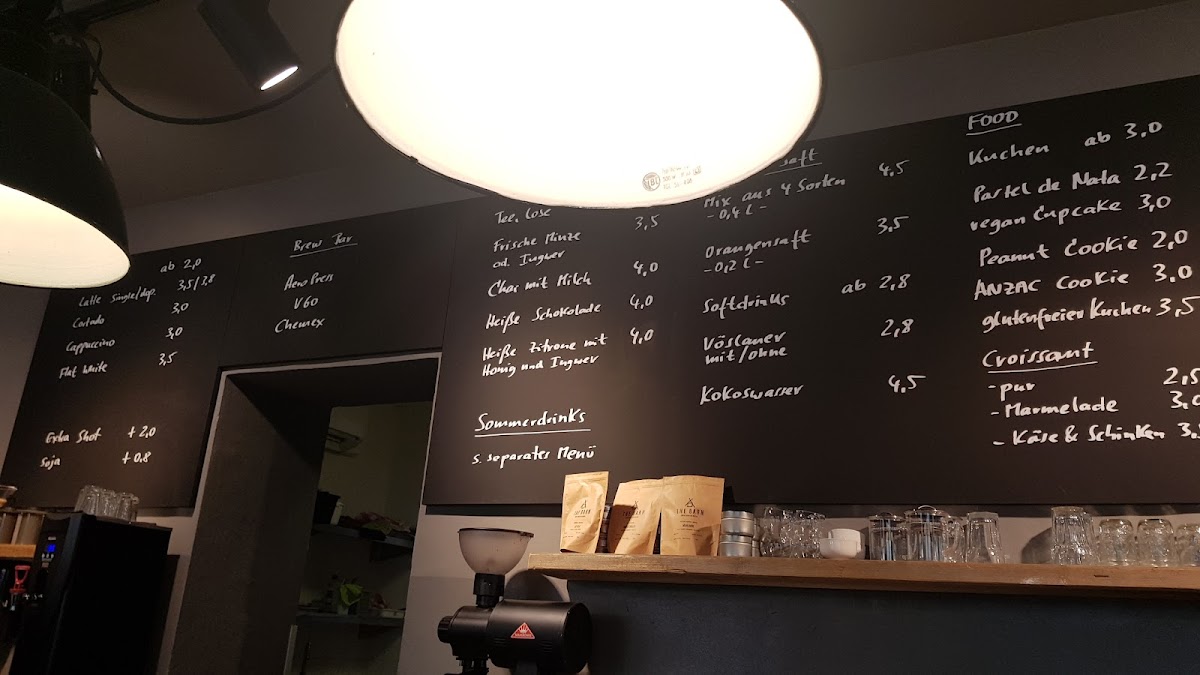 ab 2,0
Latte Single/dop. 3,5/3,8
Cortado 3,0
Cappuccino 3,0
Flat White 3,5
Extra Shot + 2,0
Soja + 0.8
Brew Bar
AeroPress
V60
Chemex
Tee, Lose 3,5
Frische Minze
od. Ingwer 4,0
Chai mit Milch
Heiße Schokolade 4,0
Heiße Zitrone mit 4,0
Honig und Ingwer
Sommerdrinks
s. separates Menü
saft
Mix aus 4 Sorten 4,5
- 0,4 L -
Orangensaft 3,5
- 0,2 L -
Softdrinks ab 2,8
Vöslauer 2,8
mit/ohne
Kokoswasser 4,5
FOOD
Kuchen ab 3,0
Pastel de Nata 2,2
vegan Cupcake 3,0
Peanut Cookie 2,0
ANZAC Cookie 3,0
glutenfreier Kuchen 3,5
Croissant
- pur 2,5
- Marmelade 3,0
- Käse & Schinken 3,
THE BARN